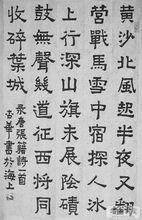 黄沙北風起半夜又翻
營戰馬雪中宿探人冰
上行深山旗未展陰磧
鼓無聲幾道征西將同
收碎葉城
录唐張籍詩一首
華書於海上